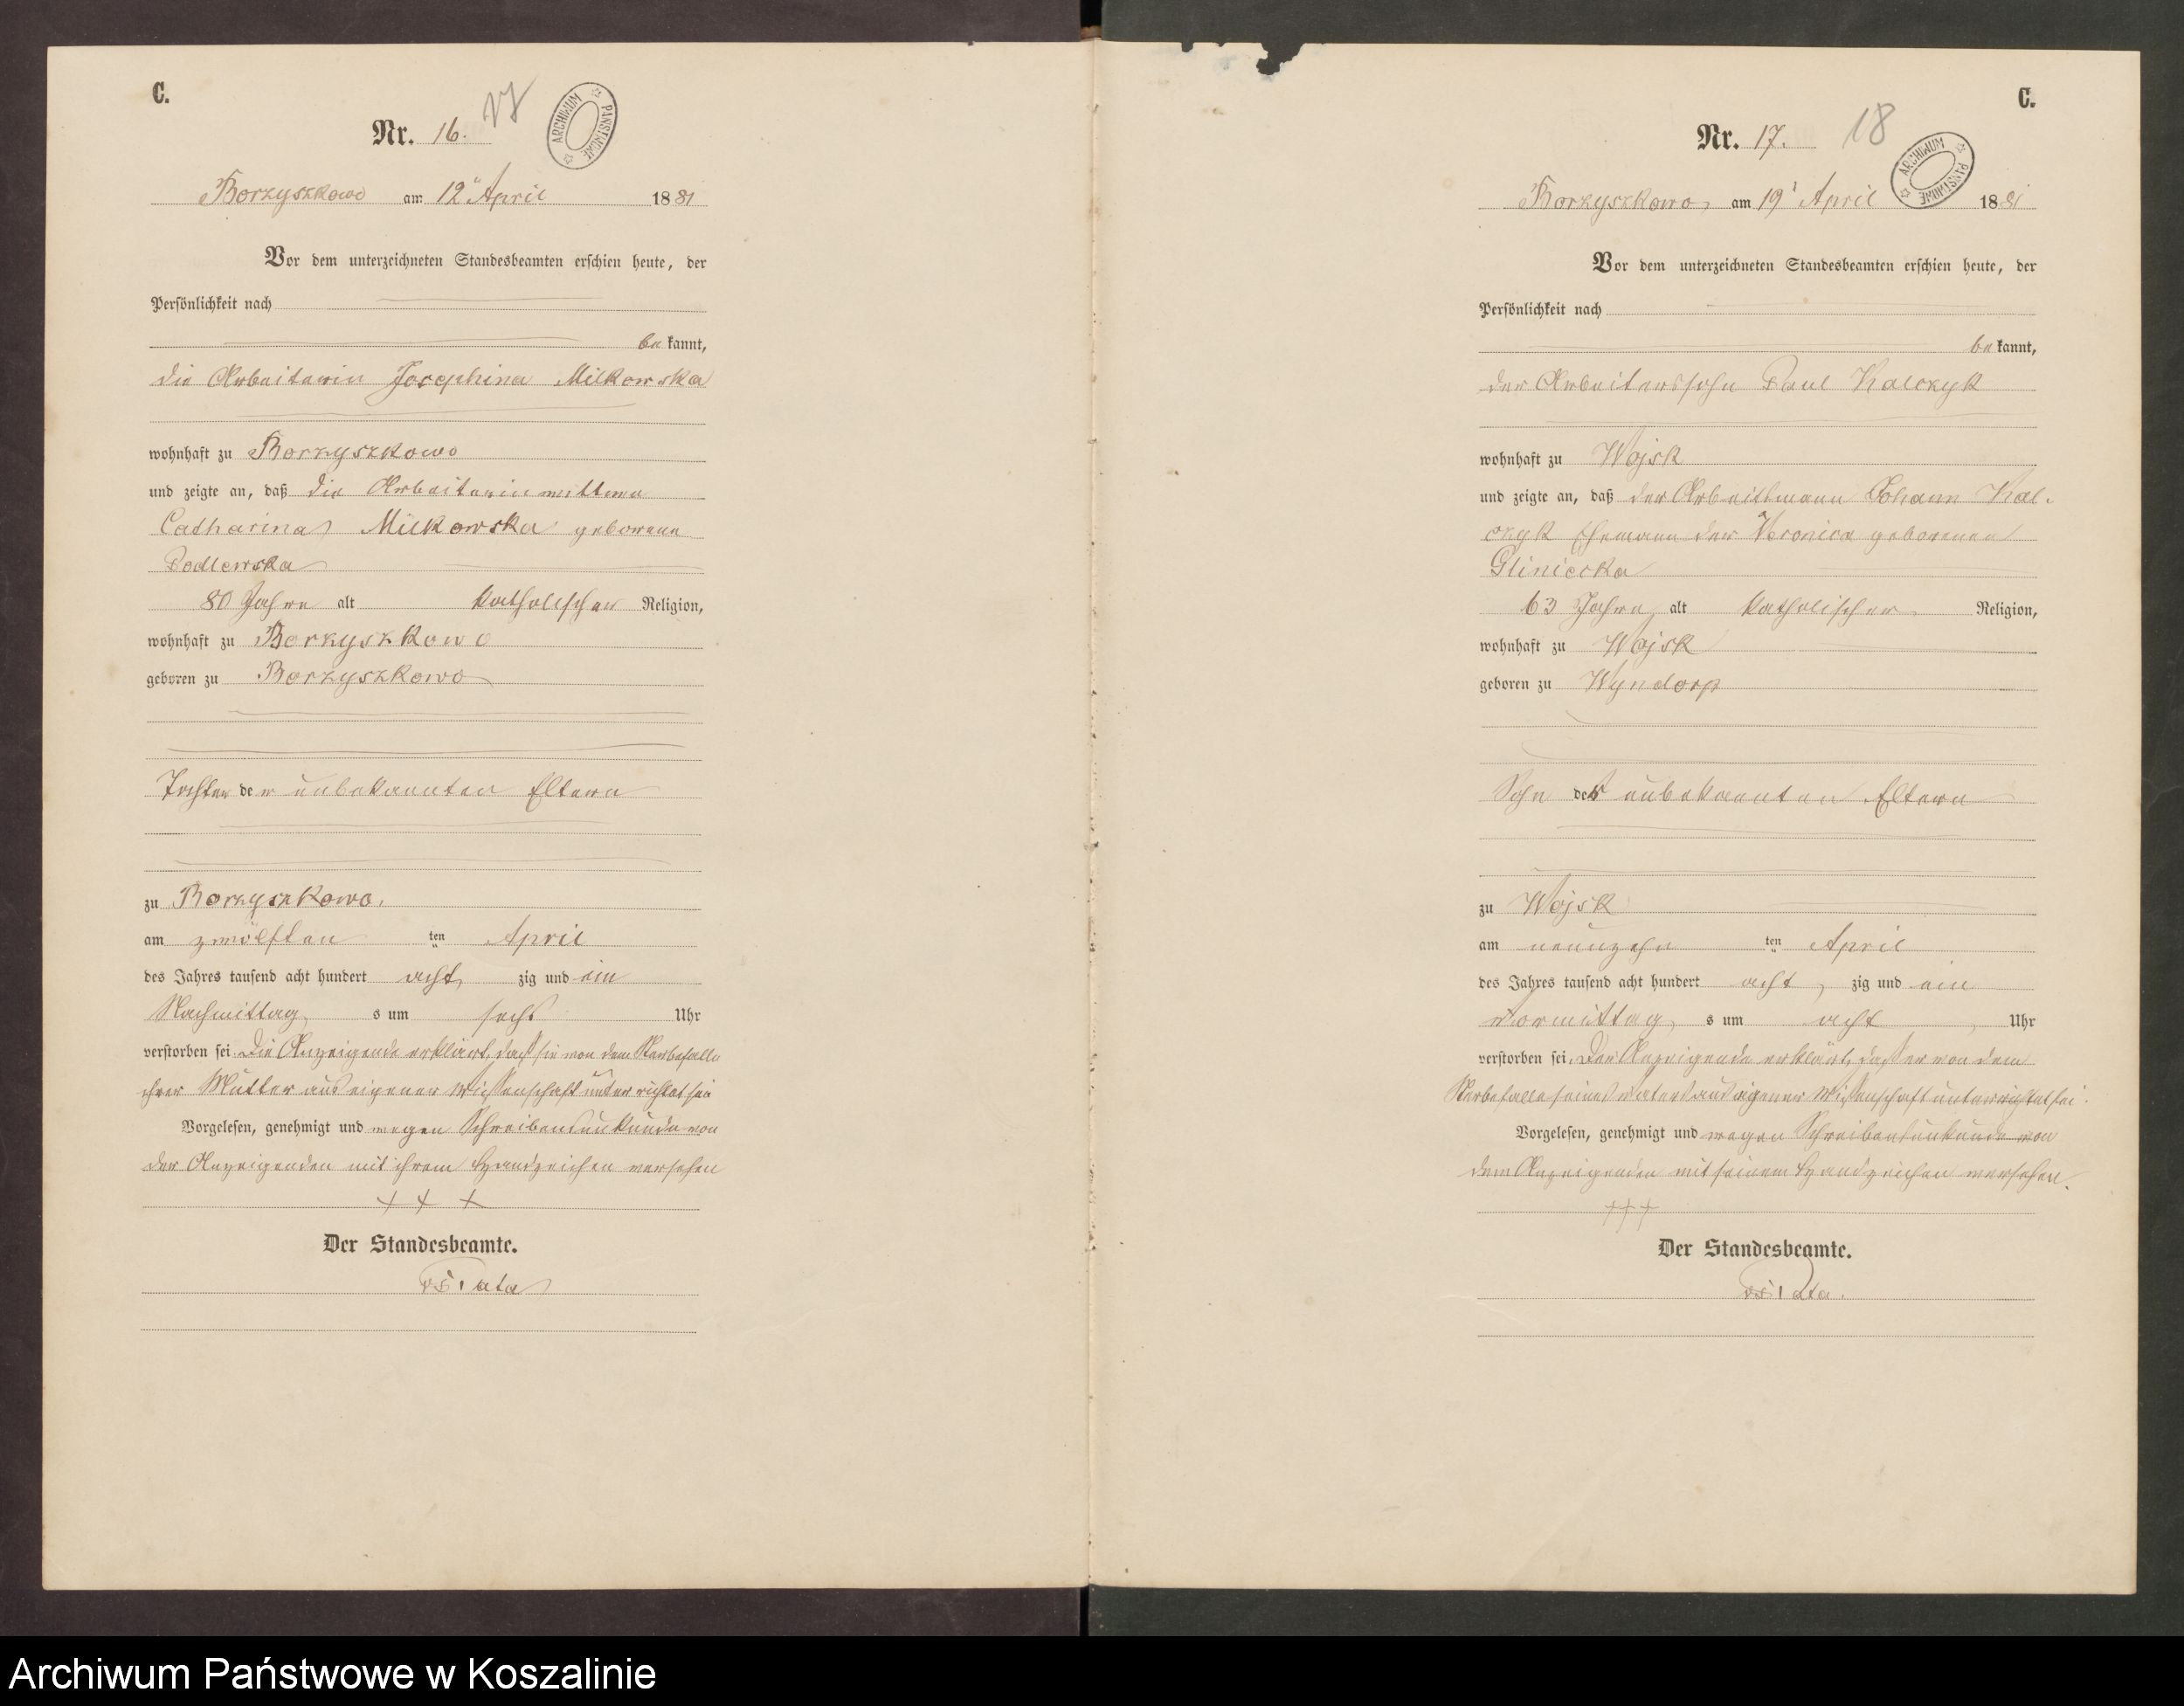 C.
Nr. 16.
17
ARCHIWUM PAŃSTWOWE
Borzyszkowo am 12ⁿ April 1881
Vor dem unterzeichneten Standesbeamten erschien heute, der
Persönlichkeit nach
bekannt,
die Arbeiterin Josephina Milkowska
wohnhaft zu Borzyszkowo
und zeigte an, daß die Arbeiterinwittwe
Catharina Milkowska geborene
Podlewska
80 Jahre alt katholischer Religion,
wohnhaft zu Borzyszkowo
geboren zu Borzyszkowo
Tochter der unbekannten Eltern
zu Borzyszkowo.
am zwölften ten April
des Jahres tausend acht hundert acht zig und ein
Nachmittag s um sechs Uhr
verstorben sei. Die Anzeigende erklärt, daß sie von dem Sterbefalle
ihrer Mutter aus eigener Wissenschaft unterrichtet sei
Vorgelesen, genehmigt und wegen Schreibensunkunde von
der Anzeigenden mit ihrem Handzeichen versehen
+ + +
Der Standesbeamte.
C.
Nr. 17.
18
ARCHIWUM PAŃSTWOWE
Borzyszkowo am 19ᵗ April 1881
Vor dem unterzeichneten Standesbeamten erschien heute, der
Persönlichkeit nach
bekannt,
der Arbeiterssohn Paul Kalczyk
wohnhaft zu Wojsk
und zeigte an, daß der Arbeitsmann Johann Kal-
czyk Ehemann der Veronica geborenen
Gliniecka
63 Jahre alt katholischer Religion,
wohnhaft zu Wojsk
geboren zu Wyndorp
Sohn der unbekannten Eltern
zu Wojsk
am neunzehn ten April
des Jahres tausend acht hundert acht zig und ein
Vormittag s um acht Uhr
verstorben sei. Der Anzeigende erklärt, daß er von dem
Sterbefalle seines Vaters aus eigener Wissenschaft unterrichtet sei.
Vorgelesen, genehmigt und wegen Schreibensunkunde von
dem Anzeigenden mit seinem Handzeichen versehen.
+++
Der Standesbeamte.
Archiwum Państwowe w Koszalinie